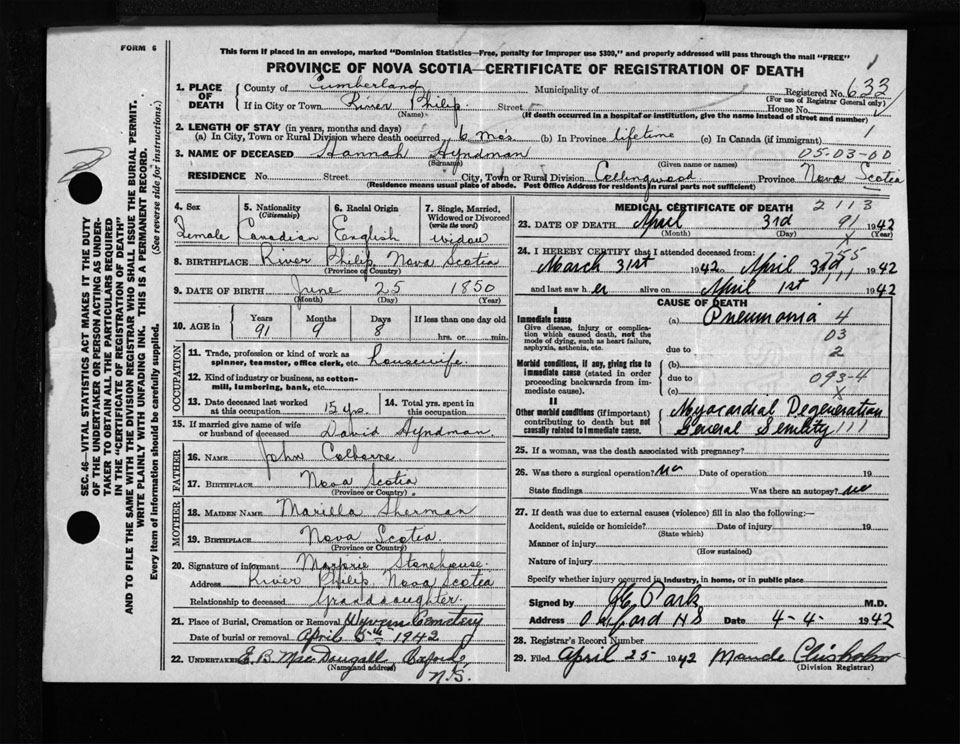 FORM 6
This form if placed in an envelope, marked "Dominion Statistics—Free, penalty for improper use $300," and properly addressed will pass through the mail "FREE"
PROVINCE OF NOVA SCOTIA—CERTIFICATE OF REGISTRATION OF DEATH
SEC. 46—VITAL STATISTICS ACT MAKES IT THE DUTY
OF THE UNDERTAKER OR PERSON ACTING AS UNDER-
TAKER TO OBTAIN ALL THE PARTICULARS REQUIRED
IN THE "CERTIFICATE OF REGISTRATION OF DEATH"
AND TO FILE THE SAME WITH THE DIVISION REGISTRAR WHO SHALL ISSUE THE BURIAL PERMIT.
WRITE PLAINLY WITH UNFADING INK. THIS IS A PERMANENT RECORD.
Every item of information should be carefully supplied. (See reverse side for instructions.)
1. PLACE OF DEATH County of Cumberland Municipality of Registered No. 633
(For use of Registrar General only)
If in City or Town River Philip Street House No.
(Name) (If death occurred in a hospital or institution, give the name instead of street and number)
2. LENGTH OF STAY (in years, months and days)
(a) In City, Town or Rural Division where death occurred 6 Mos. (b) In Province lifetime (c) In Canada (if immigrant) 1
3. NAME OF DECEASED Hannah Hyndman 05-03-00
(Surname) (Given name or names)
RESIDENCE No. Street City, Town or Rural Division Collingwood Province Nova Scotia
(Residence means usual place of abode. Post Office Address for residents in rural parts not sufficient)
4. Sex Female
5. Nationality (Citizenship) Canadian
6. Racial Origin English
7. Single, Married, Widowed or Divorced (write the word) widow
8. BIRTHPLACE River Philip Nova Scotia
(Province or Country)
9. DATE OF BIRTH June 25 1850
(Month) (Day) (Year)
10. AGE in Years 91 Months 9 Days 8 If less than one day old
hrs. or min.
OCCUPATION
11. Trade, profession or kind of work as
spinner, teamster, office clerk, etc. housewife
12. Kind of industry or business, as cotton-
mill, lumbering, bank, etc.
13. Date deceased last worked
at this occupation 15 yrs.
14. Total yrs. spent in
this occupation
15. If married give name of wife
or husband of deceased David Hyndman
FATHER
16. Name John Colborne
17. Birthplace Nova Scotia
(Province or Country)
MOTHER
18. Maiden Name Marilla Sherman
19. Birthplace Nova Scotia
(Province or Country)
20. Signature of informant Marjorie Stonehouse
Address River Philip, Nova Scotia
Relationship to deceased Granddaughter
21. Place of Burial, Cremation or Removal Wyvern Cemetery
Date of burial or removal April 5th 1942
22. Undertaker E. B. MacDougall Oxford,
(Name and address) N.S.
MEDICAL CERTIFICATE OF DEATH 2113
23. DATE OF DEATH April 3rd 91 1942
(Month) (Day) (Year)
24. I HEREBY CERTIFY that I attended deceased from: 755
March 31st 1942 to April 3rd 1942
and last saw her alive on April 1st 1942
CAUSE OF DEATH
I
Immediate cause (a) Pneumonia 4
Give disease, injury or complica-
tion which caused death, not the
mode of dying, such as heart failure,
asphyxia, asthenia, etc.
03
due to 2
Morbid conditions, if any, giving rise to
immediate cause (stated in order
proceeding backwards from im-
mediate cause).
(b)
due to 093-4
(c) X
II
Other morbid conditions (if important)
contributing to death but not
causally related to immediate cause.
Myocardial Degeneration
General Senility 111
25. If a woman, was the death associated with pregnancy?
26. Was there a surgical operation? no Date of operation 19
State findings Was there an autopsy? no
27. If death was due to external causes (violence) fill in also the following:—
Accident, suicide or homicide? Date of injury 19
(State which)
Manner of injury
(How sustained)
Nature of injury
Specify whether injury occurred in industry, in home, or in public place
Signed by Park M.D.
Address Oxford NS Date 4-4- 1942
28. Registrar's Record Number
29. Filed April 25 1942 Maude Chisholm
(Division Registrar)